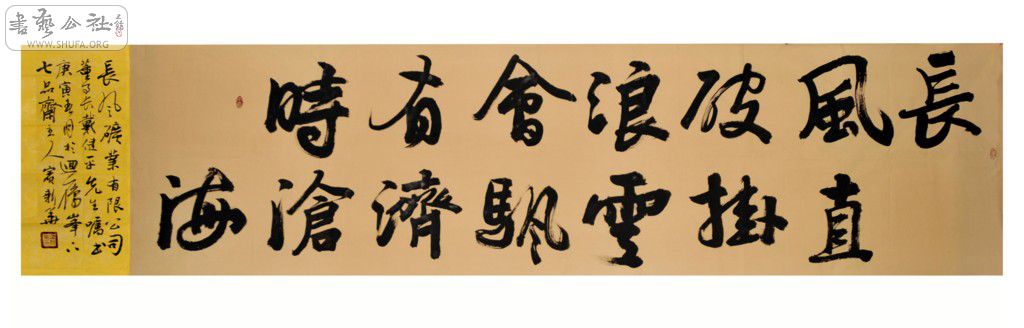 書藝公社
WWW.SHUFA.ORG
長風破浪會有時
直掛雲颿濟滄海
長風礦業有限公司
董事長戴健平先生囑書
庚寅 月於迴雁峯下
七品齋主人